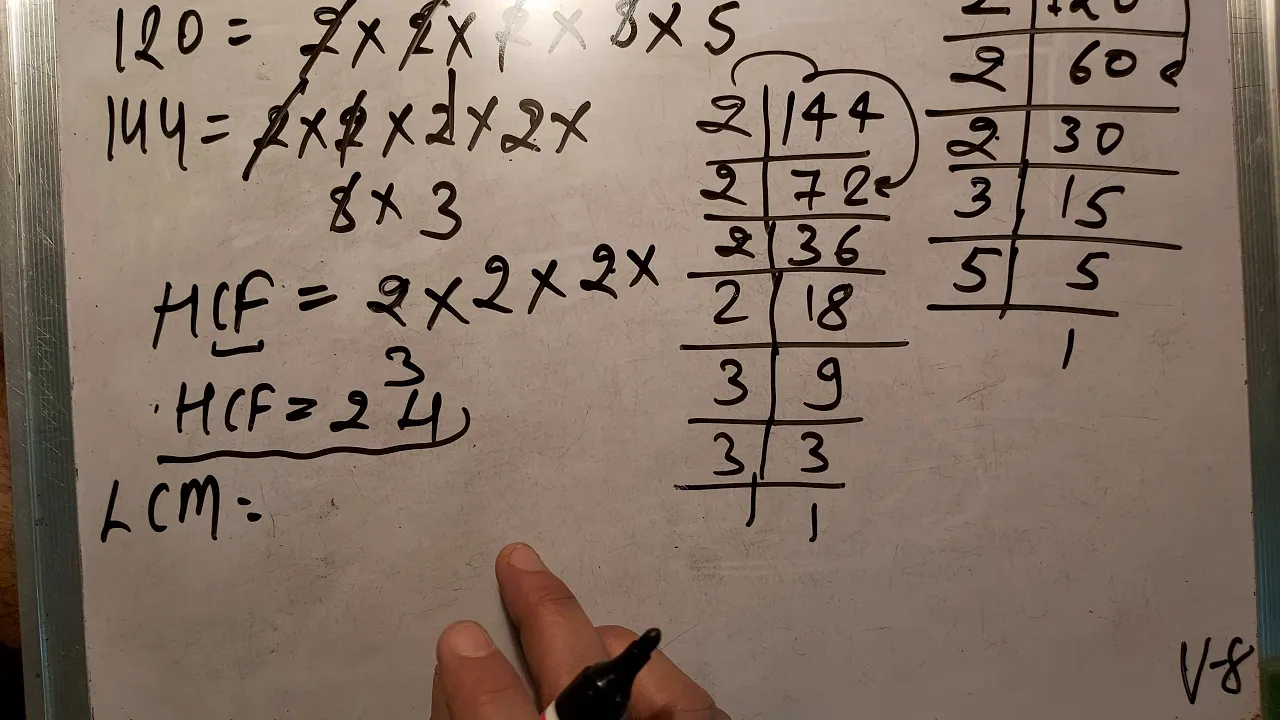 120 = 2 × 2 × 2 × 3 × 5
144 = 2 × 2 × 2 × 2 ×
3 × 3
HCF = 2 × 2 × 2 ×
3
HCF = 24
LCM =
2 144
2 72
2 36
2 18
3 9
3 3
1
2 120
2 60
2 30
3 15
5 5
1
V-8